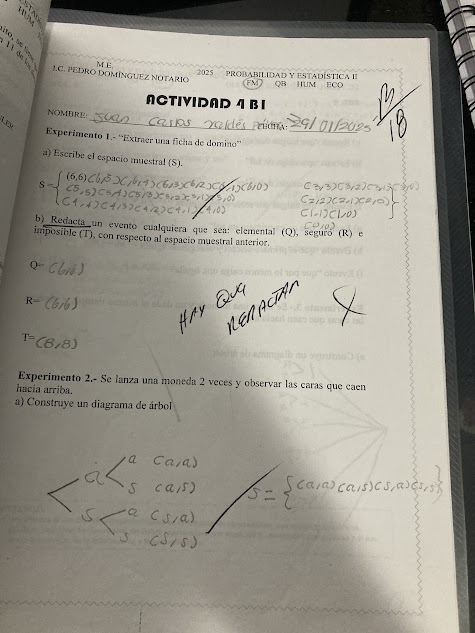 M.E.
I.C. PEDRO DOMÍNGUEZ NOTARIO 2025 PROBABILIDAD Y ESTADÍSTICA II
FM QB HUM ECO
ACTIVIDAD 4 B1
13/18
NOMBRE: Juan Carlos Valdés FECHA: 29/01/2025
Experimento 1.- “Extraer una ficha de domino”
a) Escribe el espacio muestral (S).
(6,6)(6,5)(6,4)(6,3)(6,2)(6,1)(6,0) (3,3)(3,2)(3,1)(3,0)
S = (5,5)(5,4)(5,3)(5,2)(5,1)(5,0) (2,2)(2,1)(2,0)
(4,4)(4,3)(4,2)(4,1)(4,0) (1,1)(1,0)
(0,0)
b) Redacta un evento cualquiera que sea: elemental (Q), seguro (R) e
imposible (T), con respecto al espacio muestral anterior.
Q= (6,6)
R= (6,6)
HAY QUE
REDACTAR
T= (8,8)
Experimento 2.- Se lanza una moneda 2 veces y observar las caras que caen
hacia arriba.
a) Construye un diagrama de árbol
a (a,a)
a
s (a,s)
S = {(a,a)(a,s)(s,a)(s,s)}
a (s,a)
s
s (s,s)